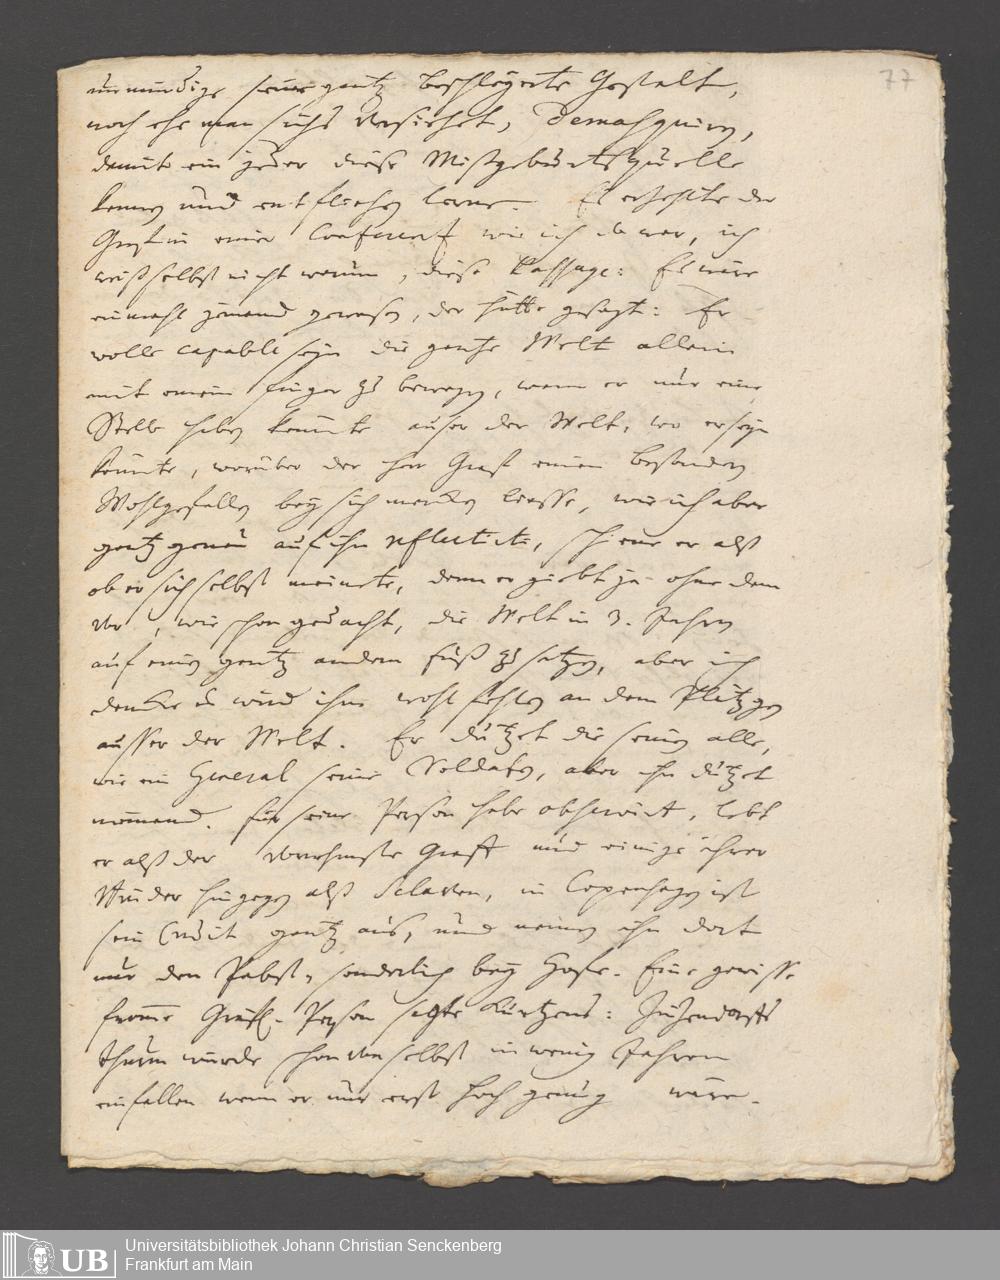 77
seine gantz beschleyerte Gestalt,
noch ehe man sichs versiehet, demasquiren,
damit ein jeder diese Mißgeburthsquelle
kennen und entfliehen lerne. Es erzehlte der
Graf in einer Conferenz wie ich da war, ich
weiß selbst nicht warum, diese Passage: Es wäre
einmahl jemand gewesen, der hätte gesagt: Er
wolle capable seyn die gantze Welt allein
mit einem Finger zu bewegen, wenn er nur eine
Stelle haben könnte ausser der Welt, wo er seyn
könnte, worüber der Herr Graf einen besondern
Wohlgefallen bey sich mercken liesse, wie ich aber
gantz genau auf ihn reflectirte, schiene er alß
ob er sich selbst meinete, denn er giebt ja ohne dem
vor, wie schon gedacht, die Welt in 3. Jahren
auf einen gantz andern Fuß zu setzen, aber ich
dencke es wird ihm wohl fehlen an dem Plätzgen
ausser der Welt. Er dutzet die seinen alle,
wie ein General seine Soldaten, aber ihn dutzet
niemand. Für seine Person habe observirt, lebt
er alß der vornehmste Graff und einige ihrer
Kinder hingegen alß Sclaven, in Copenhagen ist
sein Credit gantz aus, und nennen ihn dort
nur den Pabst, sonderlich bey Hofe. Eine gewisse
fromme Gräfl. Person sagte Kürtzens: Zinzendorffs
Thurm würde schon von selbst in wenig Jahren
einfallen wenn er nur erst hoch genug wäre.
UB
Universitätsbibliothek Johann Christian Senckenberg
Frankfurt am Main